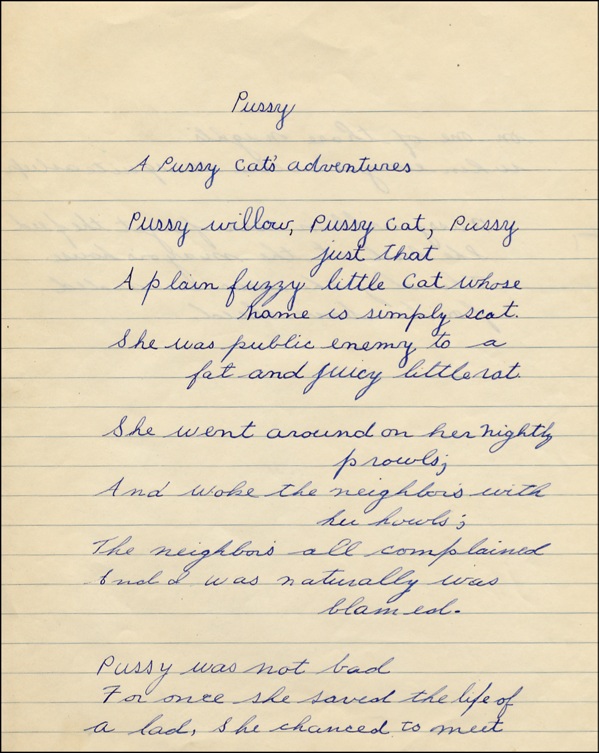 Pussy
A Pussy Cat's adventures
Pussy willow, Pussy Cat, Pussy
just that
A plain fuzzy little Cat whose
name is simply scat.
She was public enemy to a
fat and juicy little rat.
She went around on her nightly
prowls;
And woke the neighbors with
her howls;
The neighbors all complained
And I was naturally was
blamed.
Pussy was not bad
For once she saved the life of
a lad, She chanced to meet